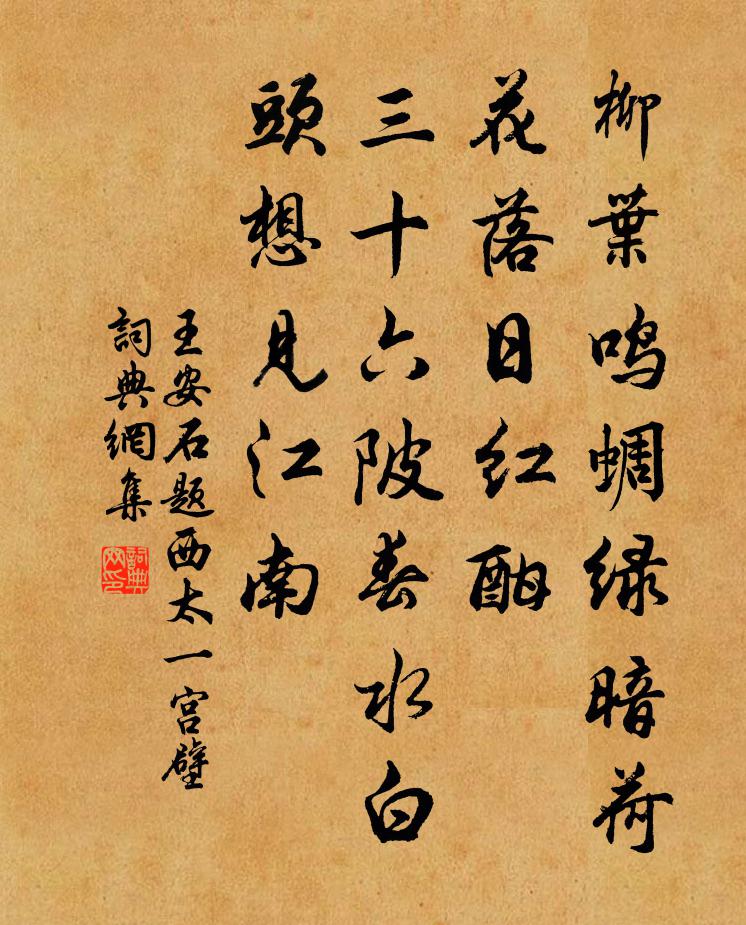 柳葉鳴蜩绿暗荷
花落日红酣
三十六陂春水白
頭想見江南
王安石题西太一宫壁
詞典網集
詞典網印